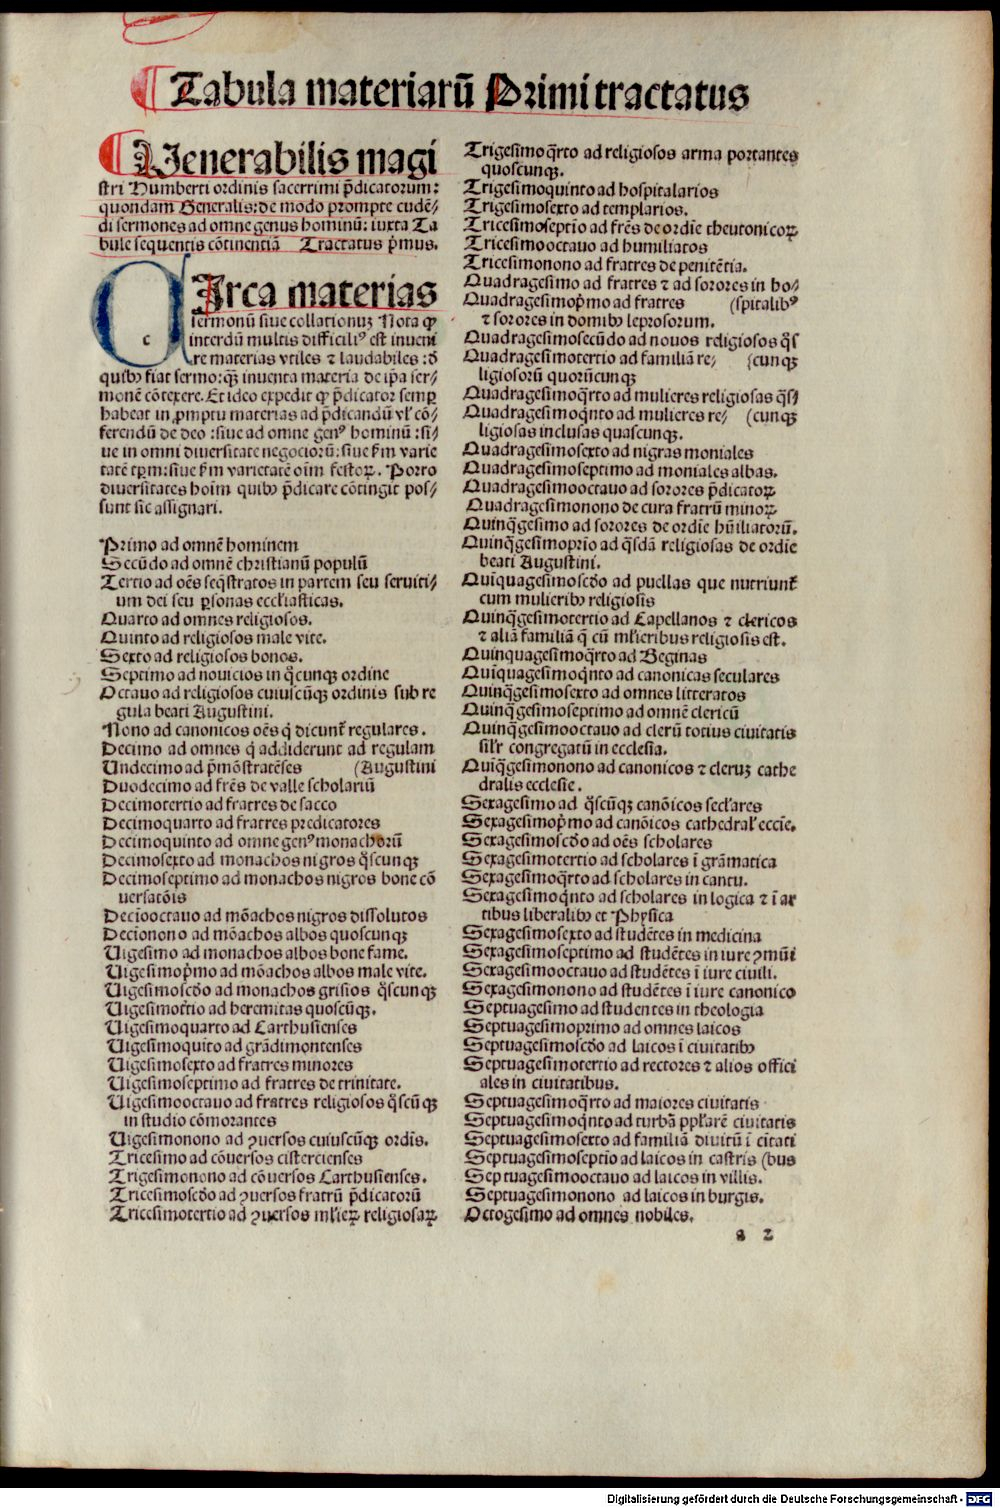 Tabula materiarū Primi tractatus
Venerabilis magi
stri Humberti ordinis sacerrimi p̄dicatorum:
quondam Generalis: de modo prompte cudē⸗
di sermones ad omne genus hominū: iuxta Ta
bule sequentis cōtinentiā Tractatus p̄mus.
Circa materias
sermonū siue collationuꝫ Nota ꝙ
interdū multis difficiliꝰ est inueni
re materias vtiles ⁊ laudabiles: d̄
quibꝰ fiat sermo: q̄ꝫ inuenta materia de ip̄a ser⸗
monē cōtexere. Et ideo expedit ꝙ p̄dicator semꝑ
habeat in ꝓmptu materias ad p̄dicandū vl' cō⸗
ferendū de deo: siue ad omne genꝰ hominū: si⸗
ue in omni diversitate negociorū: siue ẜm varie
tatē tꝑm: siue ẜm varietatē oīm festoꝝ. Porro
diuersitates hoīm quibꝰ p̄dicare cōtingit pos⸗
sunt sic assignari.
Primo ad omnē hominem
Secūdo ad omnē christianū populū
Tertio ad oēs seq̄stratos in partem seu seruiti⸗
um dei seu ꝑsonas eccl'iasticas.
Quarto ad omnes religiosos.
Quinto ad religiosos male vite.
Sexto ad religiosos bonos.
Septimo ad nouicios in q̊cunqꝫ ordine
Octauo ad religiosos cuiuscūqꝫ ordinis sub re
gula beati Augustini.
Nono ad canonicos oēs q̇ dicunt̄ regulares.
Decimo ad omnes q̇ addiderunt ad regulam
Undecimo ad p̄mōstratēses (Augustini
Duodecimo ad fr̄es de valle scholariū
Decimotertio ad fratres de sacco
Decimoquarto ad fratres predicatores
Decimoquinto ad omne genꝰ monachorū
Decimosexto ad monachos nigros q̄scunqꝫ
Decimoseptimo ad monachos nigros bone cō
uersatōis
Decīooctauo ad mōachos nigros dissolutos
Decīonono ad mōachos albos quoscunqꝫ
Uigesimo ad monachos albos bone fame.
Uigesimop̄mo ad mōachos albos male vite.
Uigesimoscd̄o ad monachos grisios q̄scunqꝫ
Uigesimot̄tio ad heremitas quoscūqꝫ.
Uigesimoquarto ad Carthusienses
Uigesimoquīto ad grādimontenses
Uigesimosexto ad fratres minores
Uigesimoseptimo ad fratres de trinitate.
Uigesimooctauo ad fratres religiosos q̄scūqꝫ
in studio cōmorantes
Uigesimonono ad ꝯuersos cuiuscūqꝫ ordīs.
Tricesimo ad cōuersos cistercienses
Trigesimonono ad cōuersos Carthusienses.
Tricesimoscd̄o ad ꝯuersos fratrū p̄dicatorū
Tricesimotertio ad ꝯuersos ml'ieꝝ religiosaꝝ
Trigesimoq̄rto ad religiosos arma portantes
quoscunqꝫ.
Trigesimoquinto ad hospitalarios
Trigesimosexto ad templarios.
Tricesimoseptio ad fr̄es de ordīe theutonicoꝝ
Tricesimooctauo ad humiliatos
Tricesimonono ad fratres de penitētia.
Quadragesimo ad fratres ⁊ ad sorores in ho⸗
Quadragesimop̄mo ad fratres (spitalibꝰ
⁊ sorores in domibꝰ leprosorum.
Quadragesimosecūdo ad nouos religiosos q̄s
Quadragesimotertio ad familiā re⸗ (cunqꝫ
ligiosorū quorūcunqꝫ
Quadragesimoq̄rto ad mulieres religiosas q̄s⸗
Quadragesimoq̇nto ad mulieres re⸗ (cunqꝫ
ligiosas inclusas quascunqꝫ.
Quadragesimosexto ad nigras moniales
Quadragesimoseptimo ad moniales albas.
Quadragesimooctauo ad sorores p̄dicatoꝝ
Quadragesimonono de cura fratrū minoꝝ
Quinq̄gesimo ad sorores de ordīe hūiliatorū.
Quinq̄gesimoprīo ad q̄sdā religiosas de ordīe
beati Augustini.
Quīquagesimoscd̄o ad puellas que nutriunt̄
cum mulieribꝰ religiosis
Quinq̄gesimotertio ad Capellanos ⁊ clericos
⁊ aliā familiā q̄ cū ml'ieribus religiosis est.
Quinquagesimoq̄rto ad Beginas
Quīquagesimoq̇nto ad canonicas seculares
Quinq̄gesimosexto ad omnes litteratos
Quinq̄gesimoseptimo ad omnē clericū
Quinq̄gesimooctauo ad clerū totius ciuitatis
sil'r congregatū in ecclesia.
Quīq̄gesimonono ad canonicos ⁊ cleruꝫ cathe
dralis ecclesie.
Sexagesimo ad q̄scūqꝫ canōicos secl'ares
Sexagesimop̄mo ad canōicos cathedral' eccīe.
Sexagesimoscd̄o ad oēs scholares
Sexagesimotertio ad scholares ī grāmatica
Sexagesimoq̄rto ad scholares in cantu.
Sexagesimoq̇nto ad scholares in logica ⁊ ī ar
tibus liberalibꝰ et Physica
Sexagesimosexto ad studētes in medicina
Sexagesimoseptimo ad studētes in iure ꝯmūi
Sexagesimooctauo ad studētes ī iure ciuili.
Sexagesimonono ad studētes ī iure canonico
Septuagesimo ad studentes in theologia
Septuagesimoprimo ad omnes laicos
Septuagesimoscd̄o ad laicos ī ciuitatibꝰ
Septuagesimotertio ad rectores ⁊ alios offici
ales in ciuitatibus.
Septuagesimoq̄rto ad maiores ciuitatis
Septuagesimoq̇nto ad turbā ppl'arē ciuitatis
Septuagesimosexto ad familiā diuitū ī cītati
Septuagesimoseptīo ad laicos in castris (bus
Septuagesimooctauo ad laicos in villis.
Septuagesimonono ad laicos in burgis.
Octogesimo ad omnes nobiles.
a 2
Digitalisierung gefördert durch die Deutsche Forschungsgemeinschaft - DFG